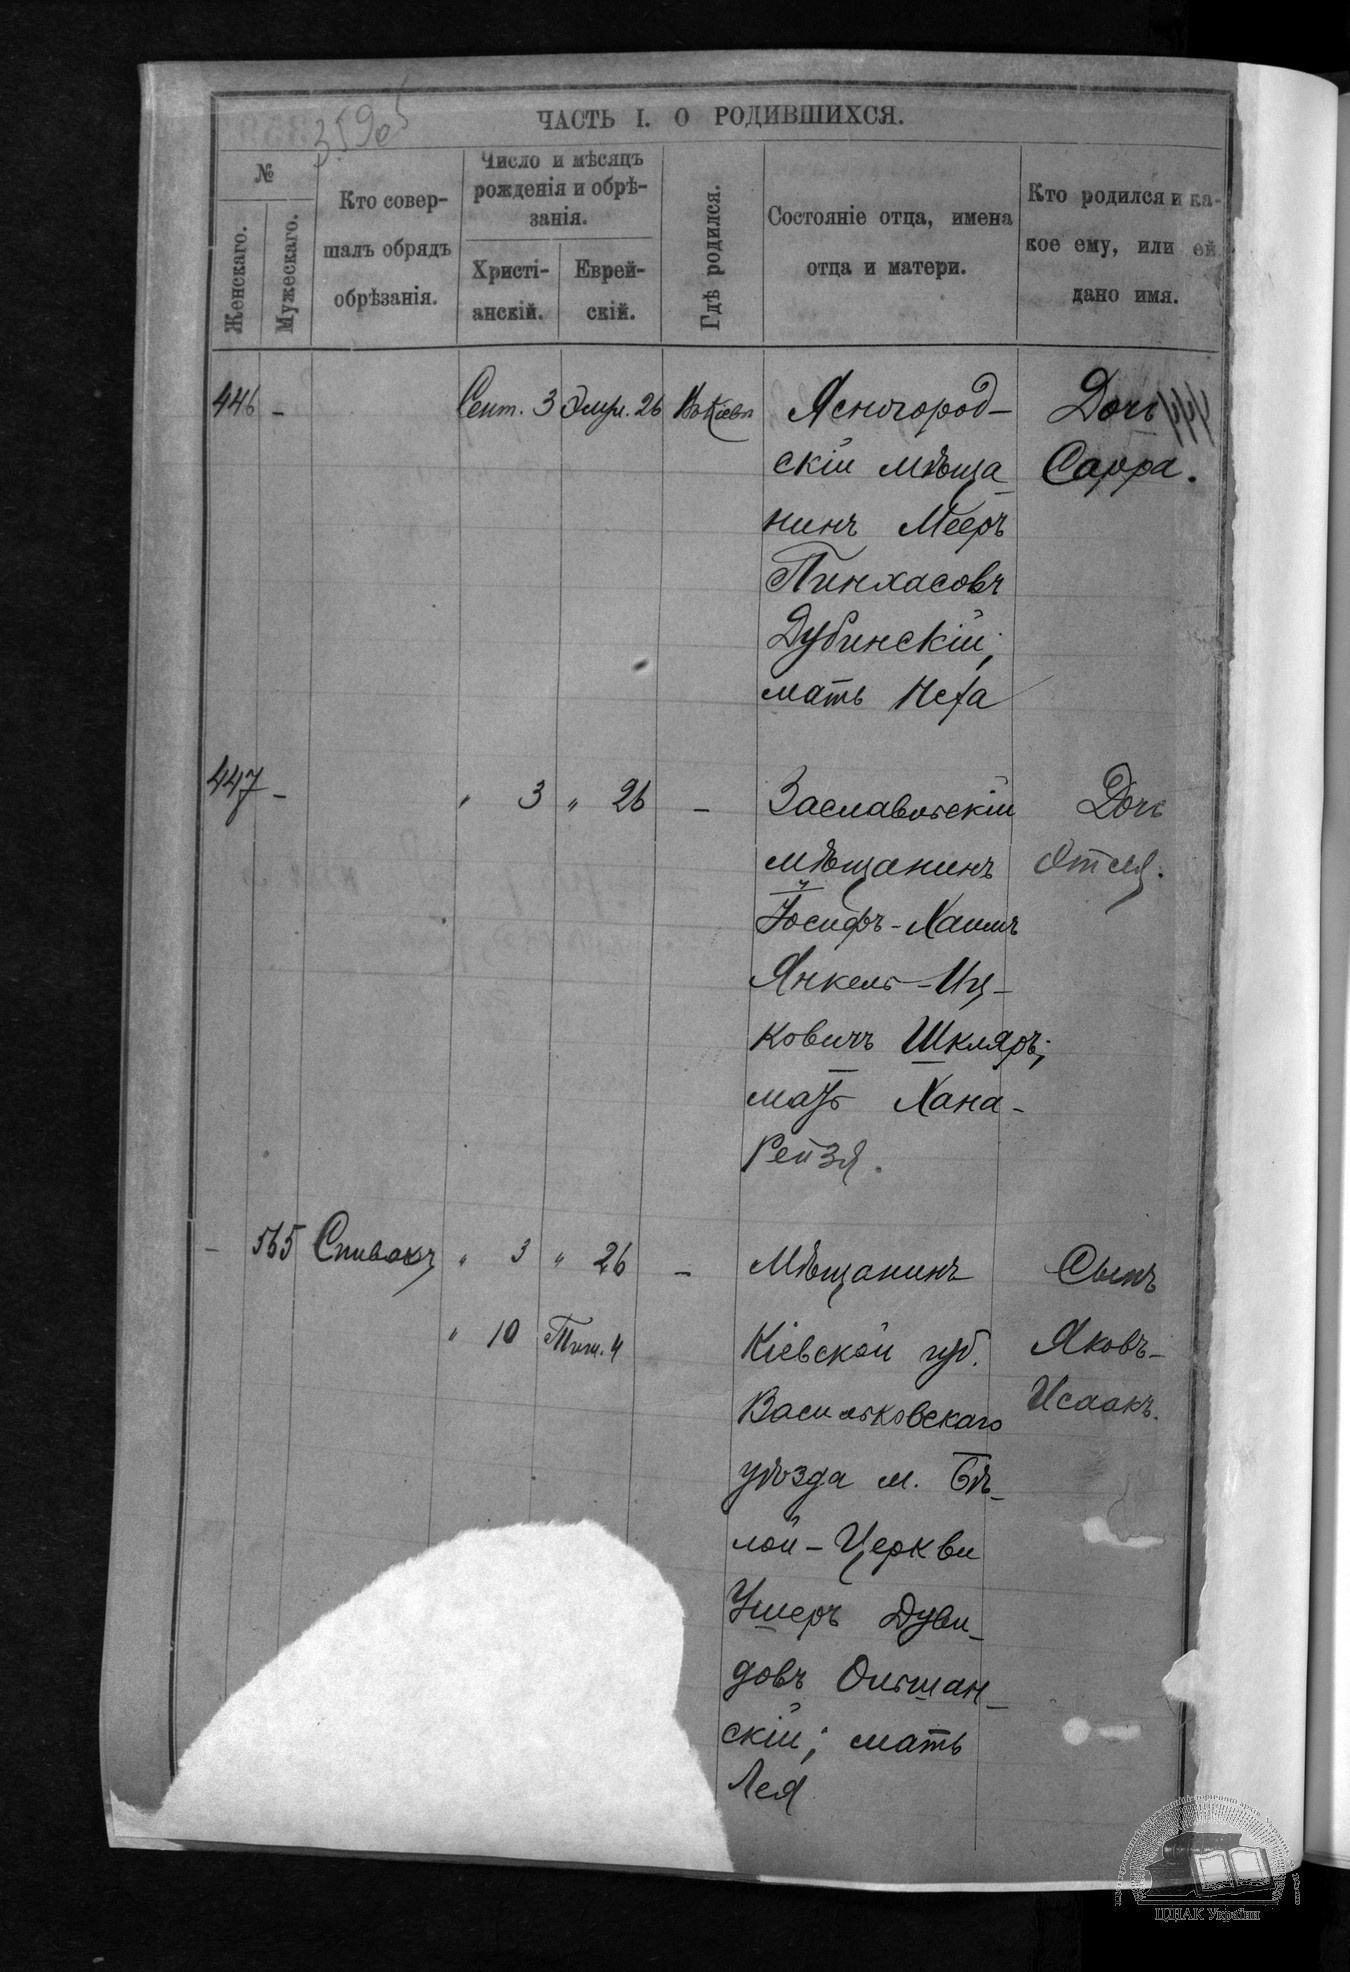 ЧАСТЬ I. О РОДИВШИХСЯ.
№
Женскаго.
Мужескаго.
Кто совер-
шалъ обрядъ
обрѣзанія.
Число и мѣсяцъ
рожденія и обрѣ-
занія.
Христі-
анскій.
Еврей-
скій.
Гдѣ родился.
Состояніе отца, имена
отца и матери.
Кто родился и ка-
кое ему, или ей
дано имя.
446 -
Сент. 3
26
Ясногород-
скій мѣща-
нинъ Мееръ
Пинхасовъ
Дубинскій;
мать Неха
Дочь
Сарра.
447 -
" 3 " 26 -
Заславльскій
мѣщанинъ
Іосифъ-Хаимъ
Янкель-Иц-
ковичъ Шкляръ;
мать Хана-
Рейзя.
Дочь
- 565 Спивакъ " 3 " 26 -
" 10 Тиш. 4
Мѣщанинъ
Кіевской губ.
Васильковскаго
уѣзда м. Бѣ-
лой-Церкви
Ушеръ Дуви-
довъ Ольшан-
скій; мать
Лея
Сынъ
Яковъ-
Исаакъ.
ЦДІАК України